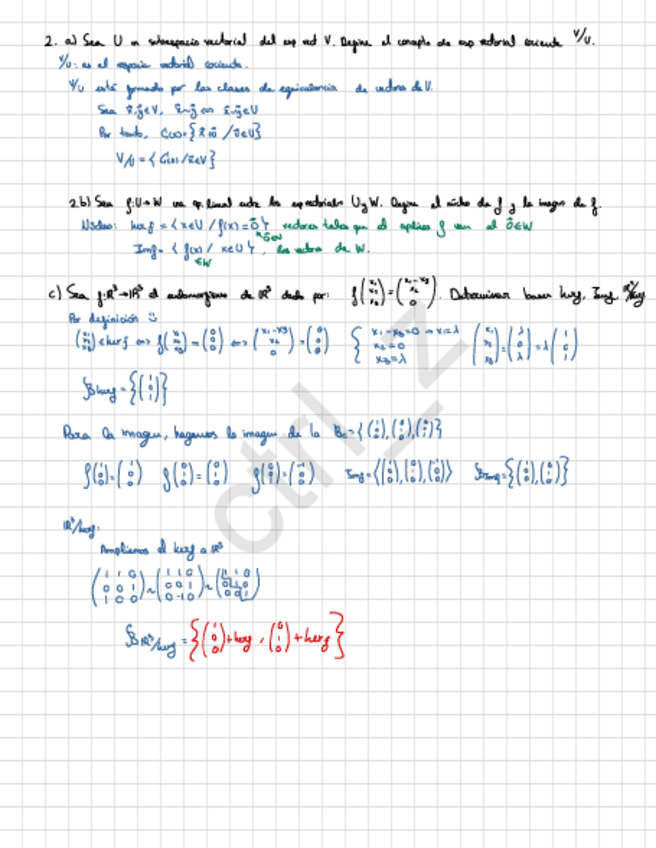 2. a) Sea U un subespacio vectorial del esp vect V. Define el concepto de esp vectorial cociente V/U.
V/U: es el espacio vectorial cociente.
V/U está formado por las clases de equivalencia de vectores de V.
Sea x̄,ȳ∈V, x̄~ȳ ⇔ x̄-ȳ∈U
Por tanto, C(x)={x̄+ū /ū∈U}
V/U = { C(x) / x̄∈V }
2.b) Sea f:U→W una ap. lineal entre los esp vectoriales U y W. Define el núcleo de f y la imagen de f.
Núcleo: ker f = { x∈U / f(x)=0̄ } vectores tales que al aplicar f van al 0̄∈W
0̄∈W
Im f = { f(x) / x∈U }, los vectores de W.
∈W
c) Sea f:R³→R³ el endomorfismo de R³ dado por: f(x₁ x₂ x₃) = (x₁-x₃ x₂ 0). Determinar bases ker f, Im f, R³/ker f
Por definición :)
(x₁ x₂ x₃) ∈ ker f ⇔ f(x₁ x₂ x₃) = (0 0 0) ⇔ (x₁-x₃ x₂ 0) = (0 0 0) { x₁-x₃=0 → x₁=λ x₂=0 x₃=λ (x₁ x₂ x₃) = (λ 0 λ) = λ(1 0 1)
B ker f = {(1 0 1)}
Para la imagen, hagamos la imagen de la Bc = {(1 0 0),(0 1 0),(0 0 1)}
f(1 0 0) = (1 0 0) f(0 1 0) = (0 1 0) f(0 0 1) = (-1 0 0) Im f = ⟨(1 0 0),(0 1 0),(-1 0 0)⟩ B Im f = {(1 0 0),(0 1 0)}
R³/ker f:
Ampliamos el ker f a R³
(1 1 0 0 0 1 1 0 0) ~ (1 1 0 0 0 1 0 -1 0) ~
B R³/ker f = {(1 0 0)+ker f , (0 1 0)+ker f}
ctrl_z